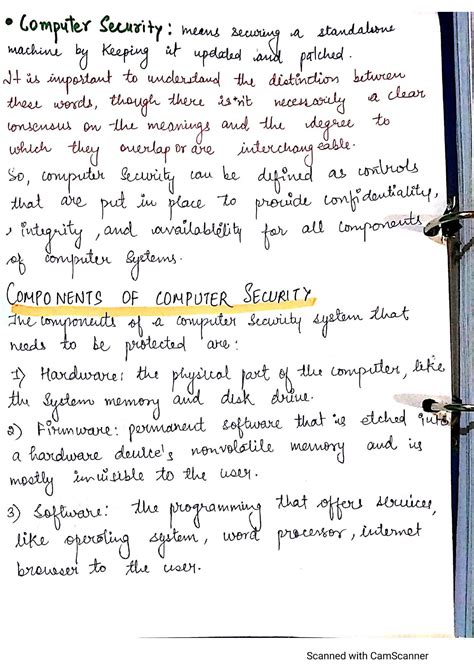 • Computer Security: means securing a standalone
machine by keeping it updated and patched.
It is important to understand the distinction between
these words, though there isn't necessarily a clear
consensus on the meanings and the degree to
which they overlap or are interchangeable.
So, computer security can be defined as controls
that are put in place to provide confidentiality,
, integrity, and availability for all components
of computer systems.
COMPONENTS OF COMPUTER SECURITY
The components of a computer security system that
needs to be protected are:
1) Hardware: the physical part of the computer, like
the system memory and disk drive.
2) Firmware: permanent software that is etched into
a hardware device's nonvolatile memory and is
mostly invisible to the user.
3) Software: the programming that offers services,
like operating system, word processor, internet
browser to the user.
Scanned with CamScanner